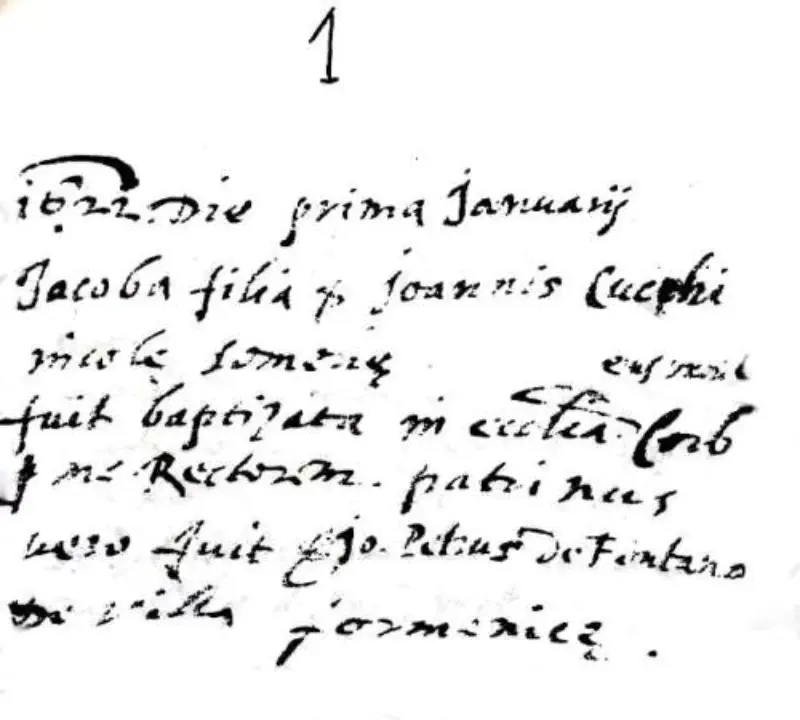 1
1622. Die prima Januarij
Jacoba filia q. Joannis Cucchi
nicole eius
fuit baptizata in ecclia Corb
p me Rectorem. patrinus
vero fuit Jo. Petrus de Fontana
De villa